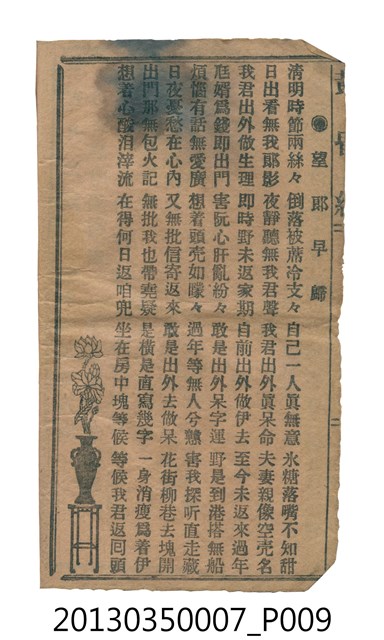 望郎早歸
清明時節兩絲々 倒落被蓆冷支々 自己一人眞無意 氷糖落嘴不知甜
日出看無我郎影 夜靜聽無我君聲 我君出外眞呆命 夫妻親像空壳名
我君出外做生理 即時野未返家期 自前出外做伊去 至今未返來過年
尪婿爲錢即出門 害阮心肝亂紛々 敢是出外呆字運 野是到港搭無船
煩惱有話無愛廣 想着頭壳如曚々 過年等無人兮戇 害我探听直走藏
日夜憂愁在心內 又無批信寄返來 敢是出外去做呆 花街柳巷去塊開
出門那無包火記 無批我也帶憢疑 是橫是直寫幾字 一身消瘦爲着伊
想着心酸泪滓流 在得何日返咱兜 坐在房中塊等候 等候我君返囘頭
20130350007_P009